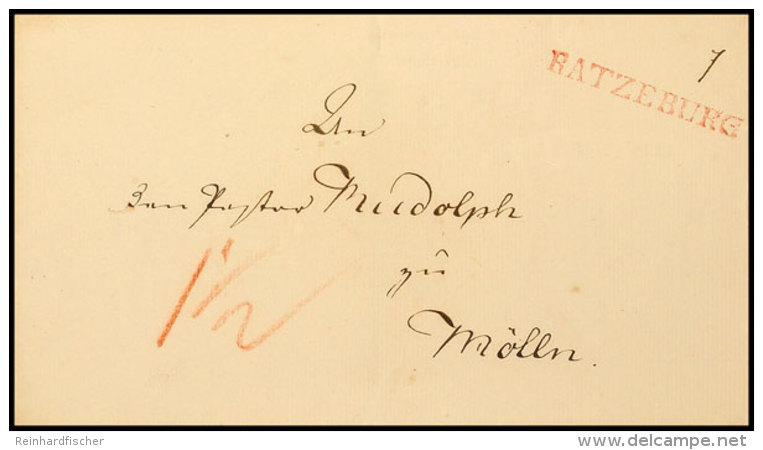 7
RATZEBURG
An
den Pastor Rudolph
1 1/2
zu
Mölln.
Reinhardfischer
www.delcampe.net